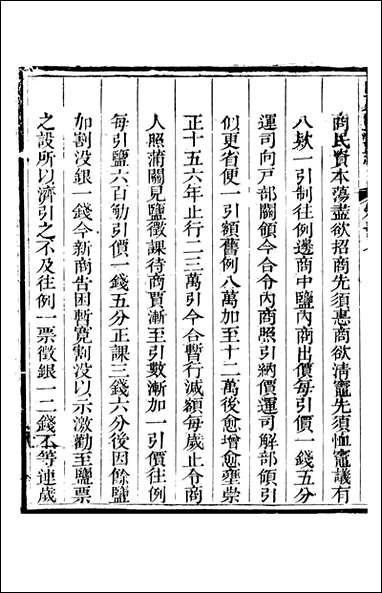 商民貲本蕩盡欲招商先須惠商欲清竈先須恤竈議有
八欵一引制往例邊商中鹽內商出價每引價一錢五分
運司向戸部關領今合令內商照引納價運司解部領引
似更省便一引額舊例八萬加至十二萬後愈增愈壅崇
正十五六年止行二三萬引今合暫行減額每歲止令商
人照蒲關見鹽徵課待商賈漸至引數漸加一引價往例
每引鹽六百觔引價一錢五分正課三錢六分後因餘鹽
加割没銀一錢今新商告困暫寬割没以示激勸至鹽票
之設所以濟引之不及往例一票徵銀一二錢不等連歲